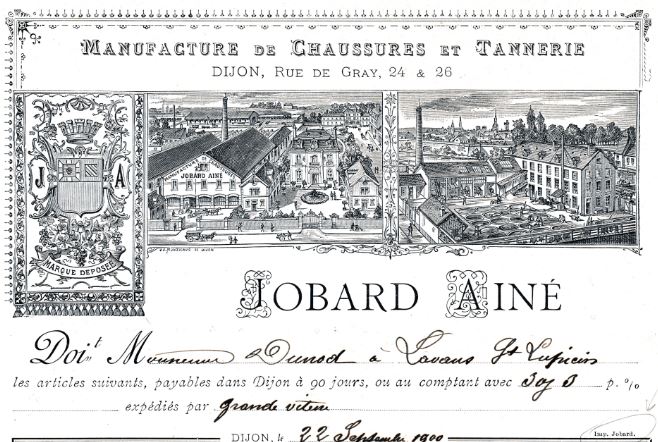 MANUFACTURE DE CHAUSSURES ET TANNERIE
DIJON, RUE DE GRAY, 24 & 26
JOBARD AINÉ
J A
MARQUE DEPOSÉE
JOBARD AINÉ
Doit Monsieur Dunod à Lavans St Lupicin
les articles suivants, payables dans Dijon à 90 jours, ou au comptant avec 3 p. %
expédiés par grande vitesse
DIJON, le 22 Septembre 1900
Imp. Jobard.